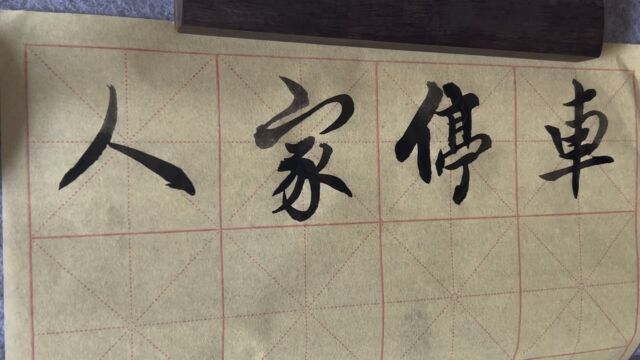 人家停車